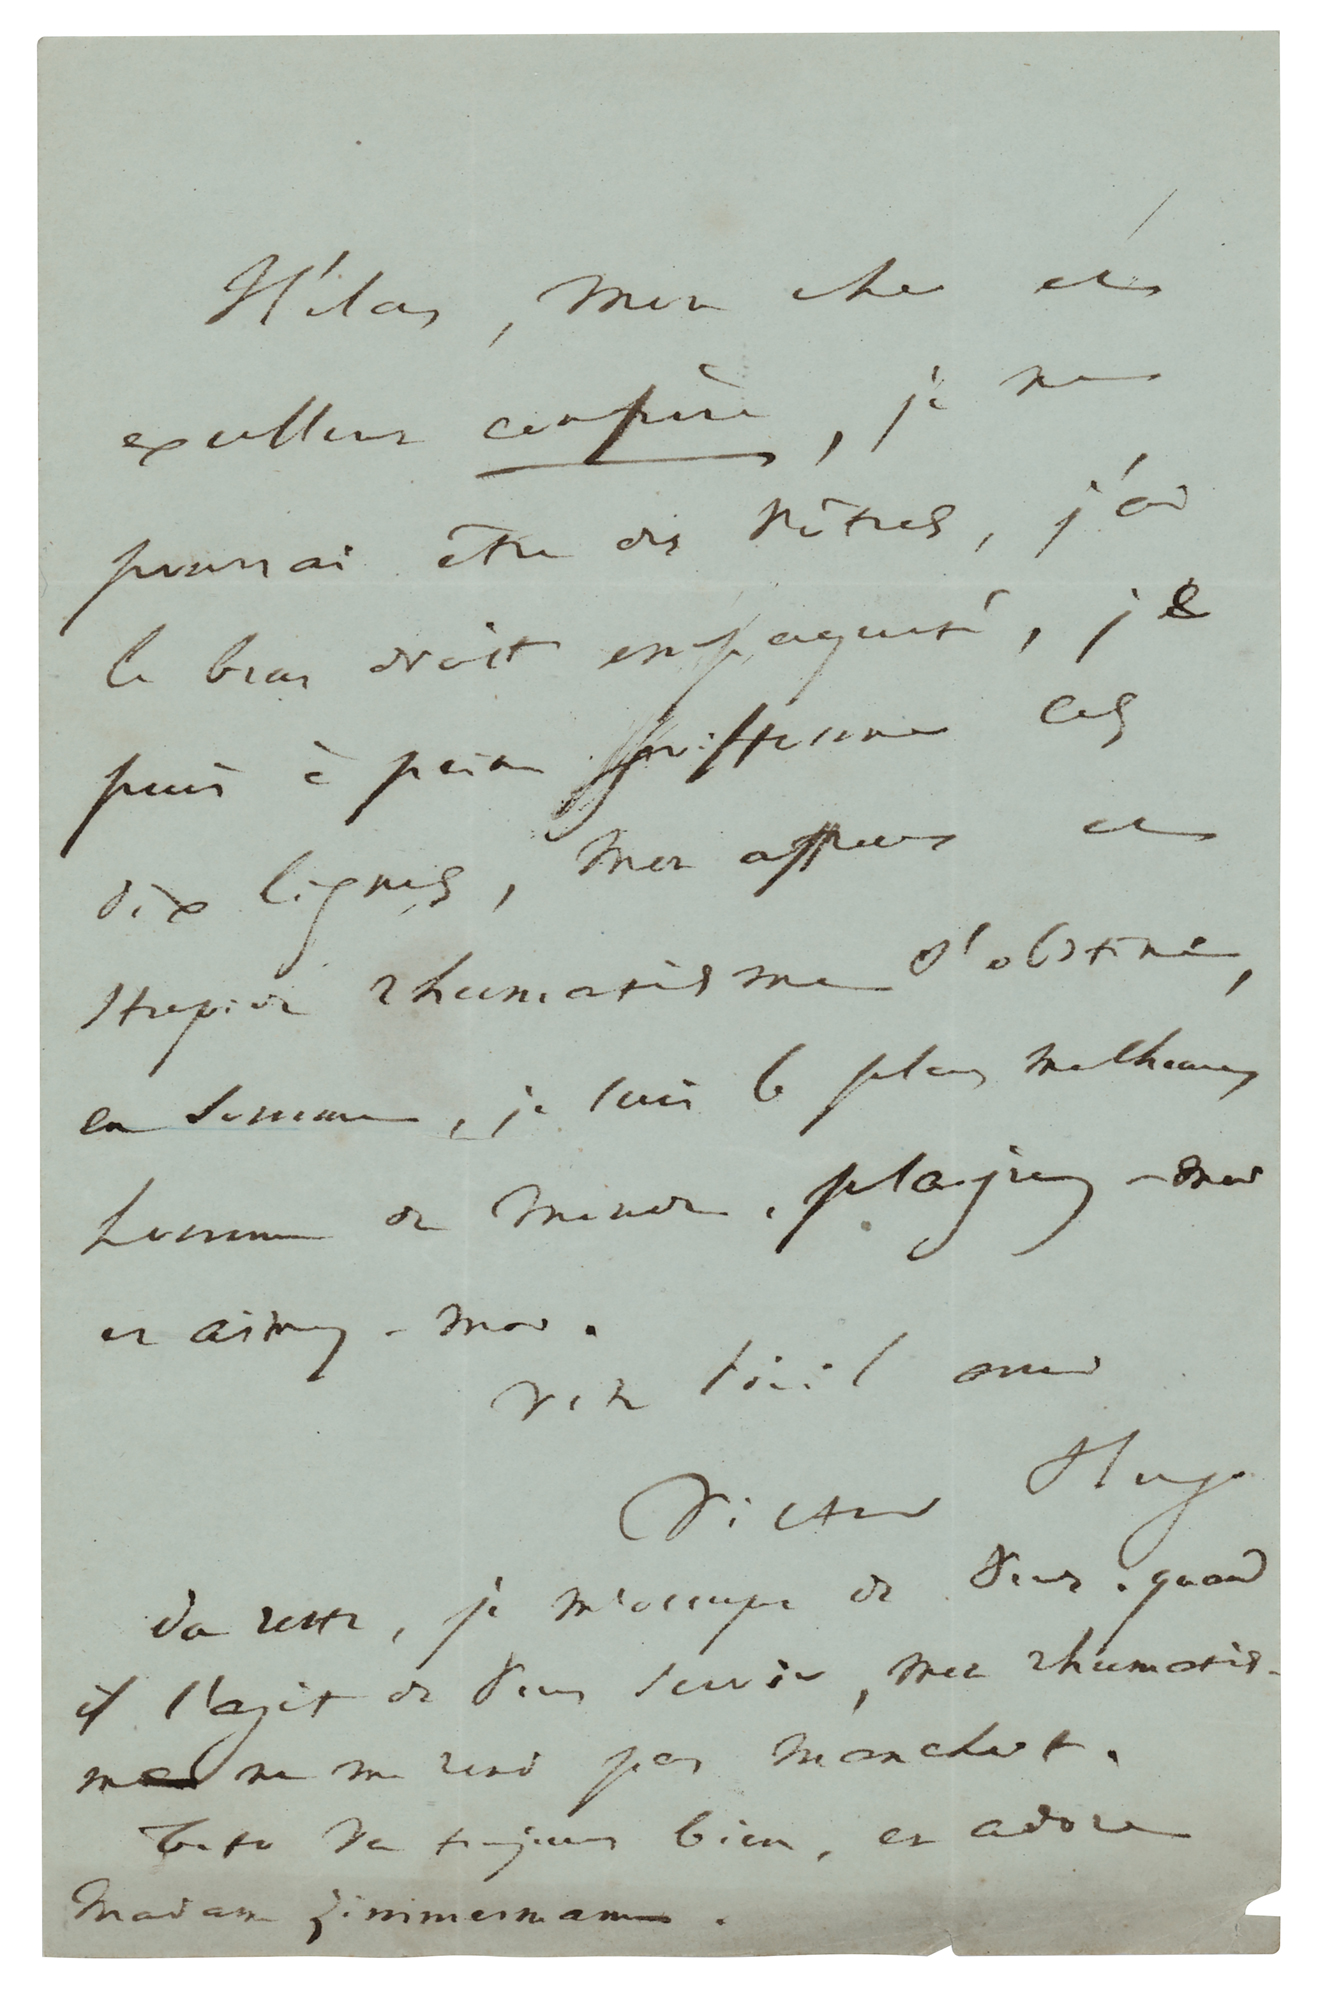 Hélas, mon cher et
excellent confrère, je ne
pourrai être des vôtres, j'ai
le bras droit empaqueté, je
puis à peine griffonner ces
dix lignes, mon affreux et
stupide rhumatisme s'obstine,
en somme, je suis le plus malheureux
homme du monde. plaignez-moi
et aimez-moi.
Victor Hugo
du reste, je m'occupe de vous. quand
il s'agit de vous servir, mon rhumatis-
me ne me rend pas manchot.
Toto va toujours bien, et adore
Madame Zimmermann.